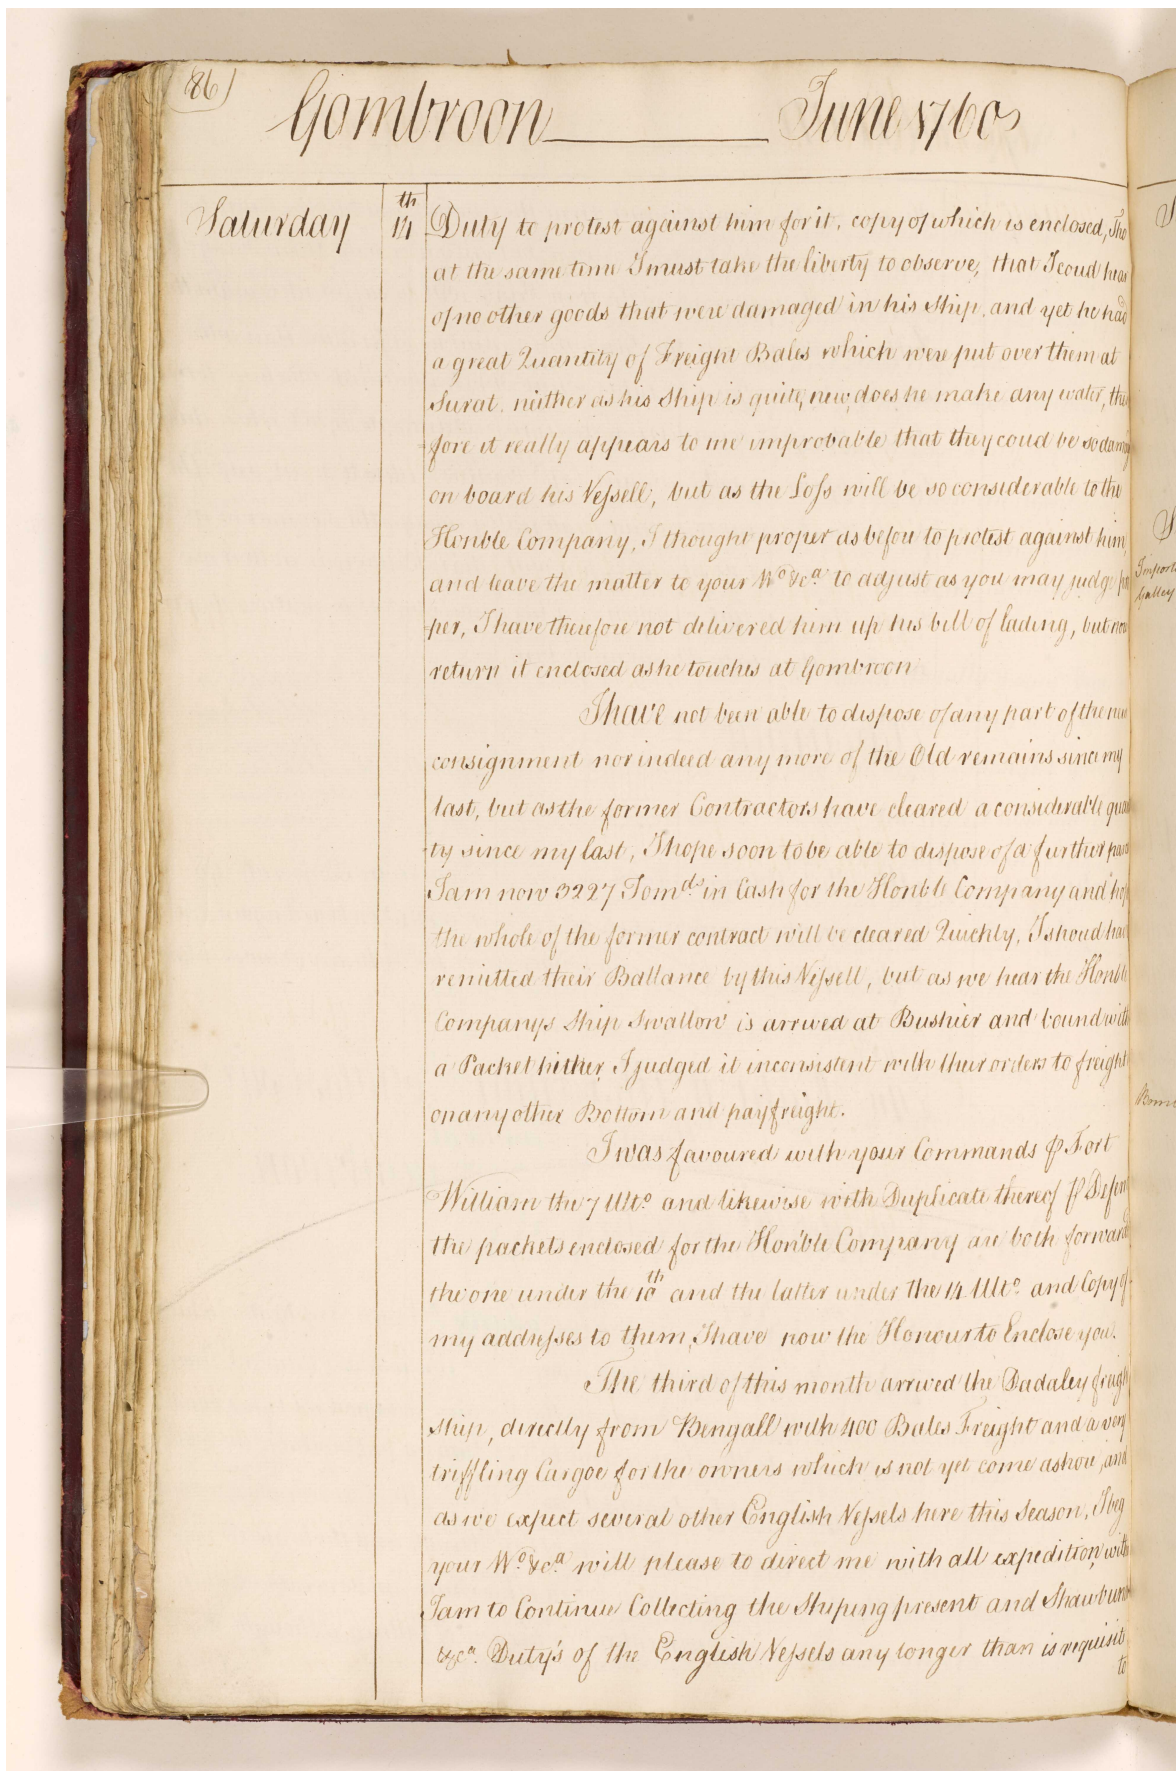 86)
Gombroon June 1760
Saturday 14th Duty to protest against him for it, copy of which is enclosed, Tho
at the same time I must take the liberty to observe, that I coud hear
of no other goods that were damaged in his Ship, and yet he had
a great Quantity of Freight Bales which were put over them at
Surat. neither as his Ship is quite, new, does he make any water, there
fore it really appears to me improbable that they coud be so damag
on board his Vessell, but as the Loss will be so considerable to the
Honble Company, I thought proper as before to protest against him,
and leave the matter to your Wo. &ca. to adjust as you may judge pro
per, I have therefore not delivered him up his bill of lading, but now
return it enclosed as he touches at Gombroon
I have not been able to dispose of any part of the new
consignment nor indeed any more of the Old remains since my
last, but as the former Contractors have cleared a considerable quan
ty since my last, I hope soon to be able to dispose of a further part
I am now 3227 Tomds. in Cash for the Honble Company and hop
the whole of the former contract will be cleared Quickly, I shoud hav
remitted their Ballance by this Vessell, but as we hear the Honble
Companys Ship Swallow is arrived at Bushier and bound with
a Packet hither, I judged it inconsistent with their orders to freight
on any other Bottom and pay freight.
I was favoured with your Commands ⅌ Fort
William the 7 Ulto. and likewise with Duplicate thereof ⅌
the packets enclosed for the Honble Company are both forward
the one under the 10th and the latter under the 14 Ulto. and Copy of
my addresses to them, I have now the Honour to Enclose you.
The third of this month arrived the Dadaley freight
ship, directly from Bengall with 400 Bales Freight and a very
triffling Cargoe for the owners which is not yet come ashore, and
as we expect several other English Vessels here this Season, I beg
your Wo. &ca. will please to direct me with all expedition,
I am to Continue Collecting the Shiping present and Shawbund
&ca. Duty's of the English Vessels any longer than is requisite
to
Import
Galley